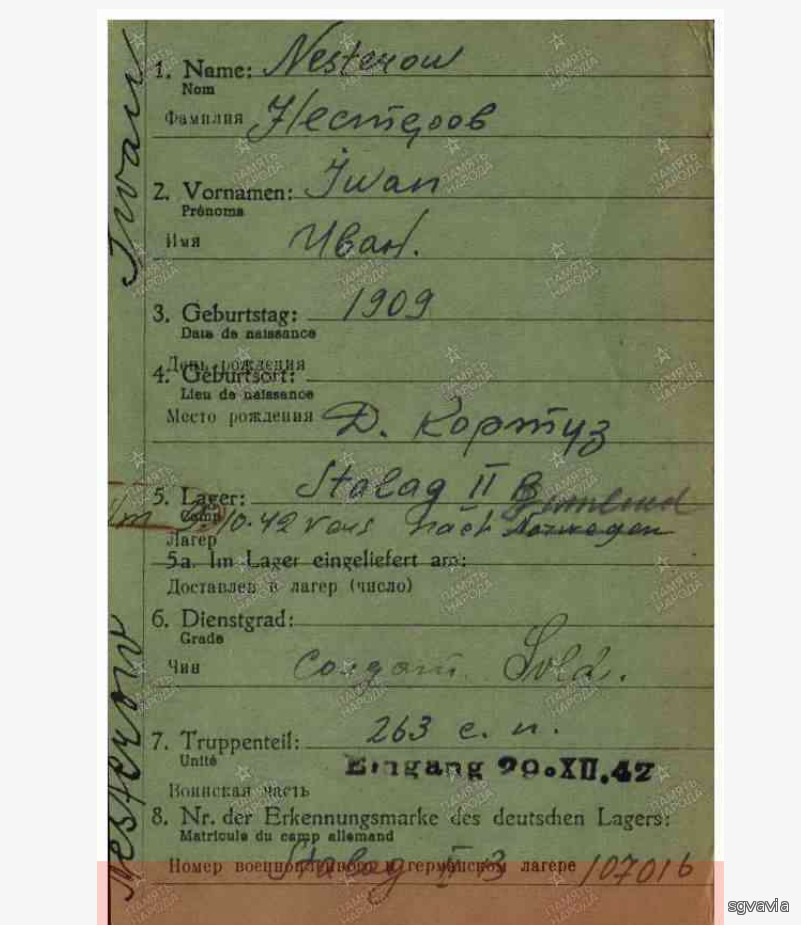 Iwan
Nesterow
1. Name: Nesterow
Nom
Фамилия Нестеров
2. Vornamen: Iwan
Prénoms
Имя Иван.
3. Geburtstag: 1909
Date de naissance
День рождения
4. Geburtsort:
Lieu de naissance
Место рождения Д. Кортуз
5. Lager: Stalag II B
Camp
10.42 nach Norwegen
Лагерь
5a. Im Lager eingeliefert am:
Доставлен в лагерь (число)
6. Dienstgrad:
Grade
Чин солдат Sold.
7. Truppenteil: 263 с. п.
Unité
Eingang 29.XII.42
Воинская часть
8. Nr. der Erkennungsmarke des deutschen Lagers:
Matricule du camp allemand
Номер военнопленного в германском лагере 107016
Stalag II B
ПАМЯТЬ НАРОДА
sgvavia